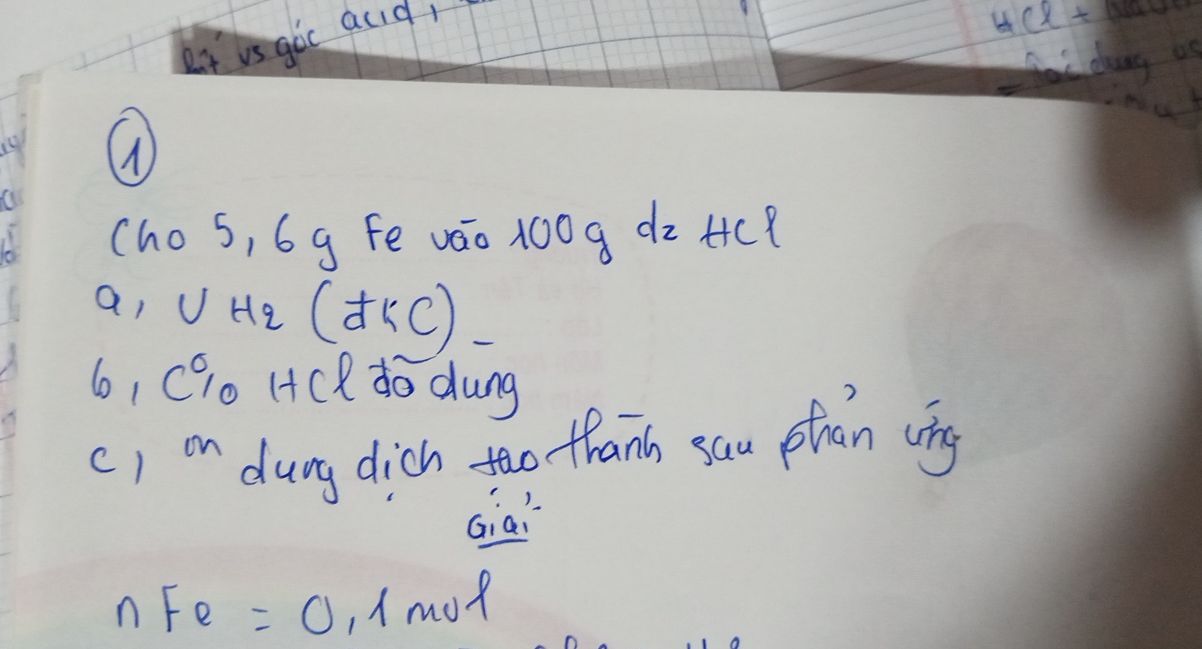 vs góc acid,
HCl +
①
Cho 5,6g Fe vào 100g d2 HCl
a, V H2 (đkC)
b, C% HCl đã dùng
c, m dung dịch tạo thành sau phản ứng
Giải
nFe = 0,1 mol